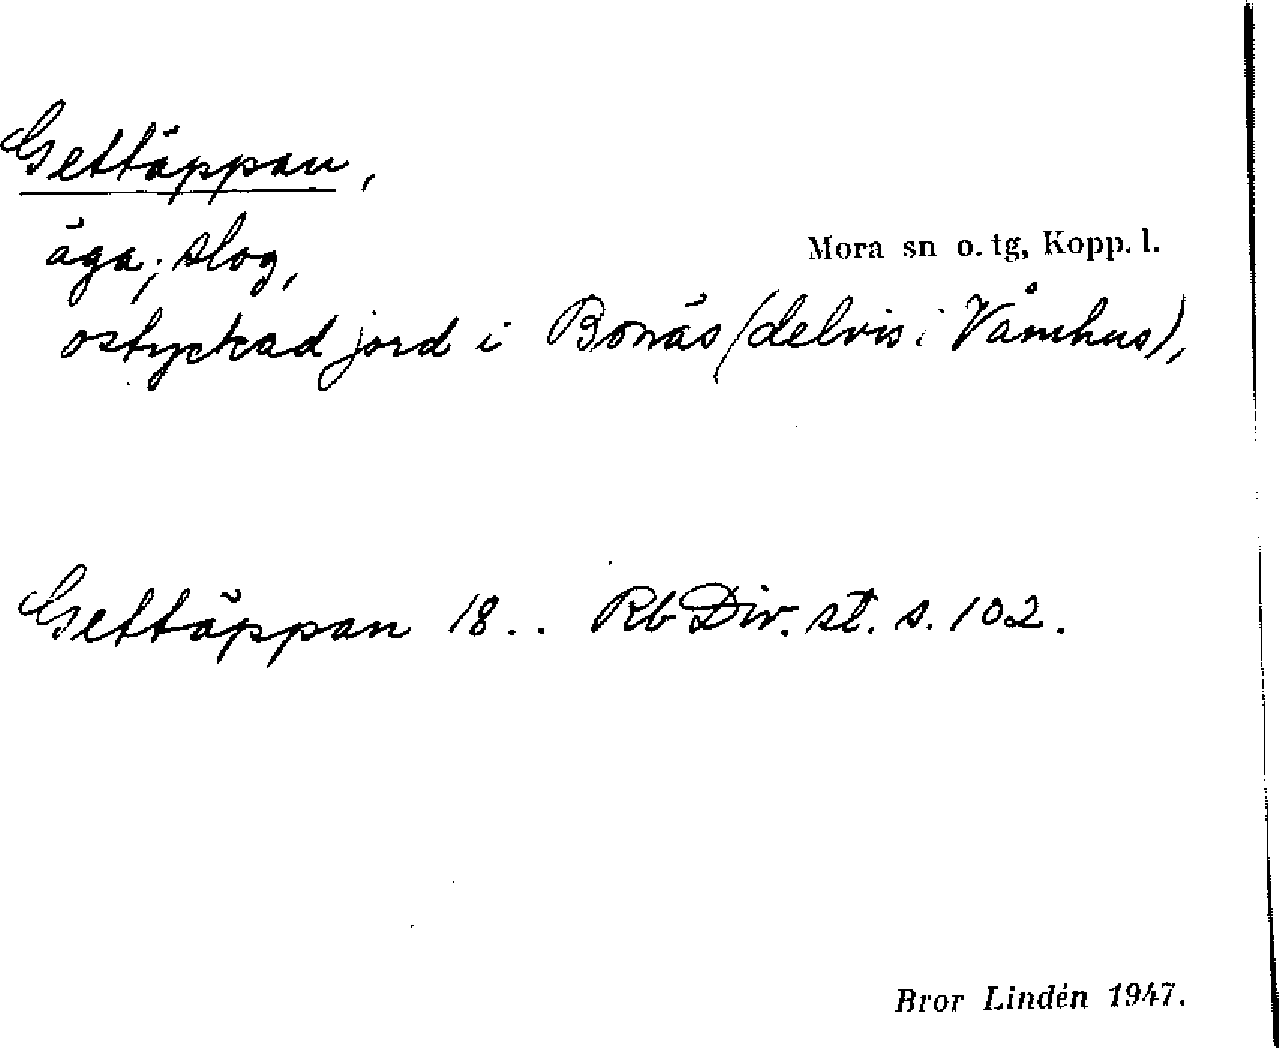 Gettäppan,
äga; slog,
Mora sn o. tg, Kopp. l.
ostyckad jord i Bonäs (delvis i Våmhus),
Gettäppan 18.. Rb Div. st. s. 102.
Bror Lindén 1947.